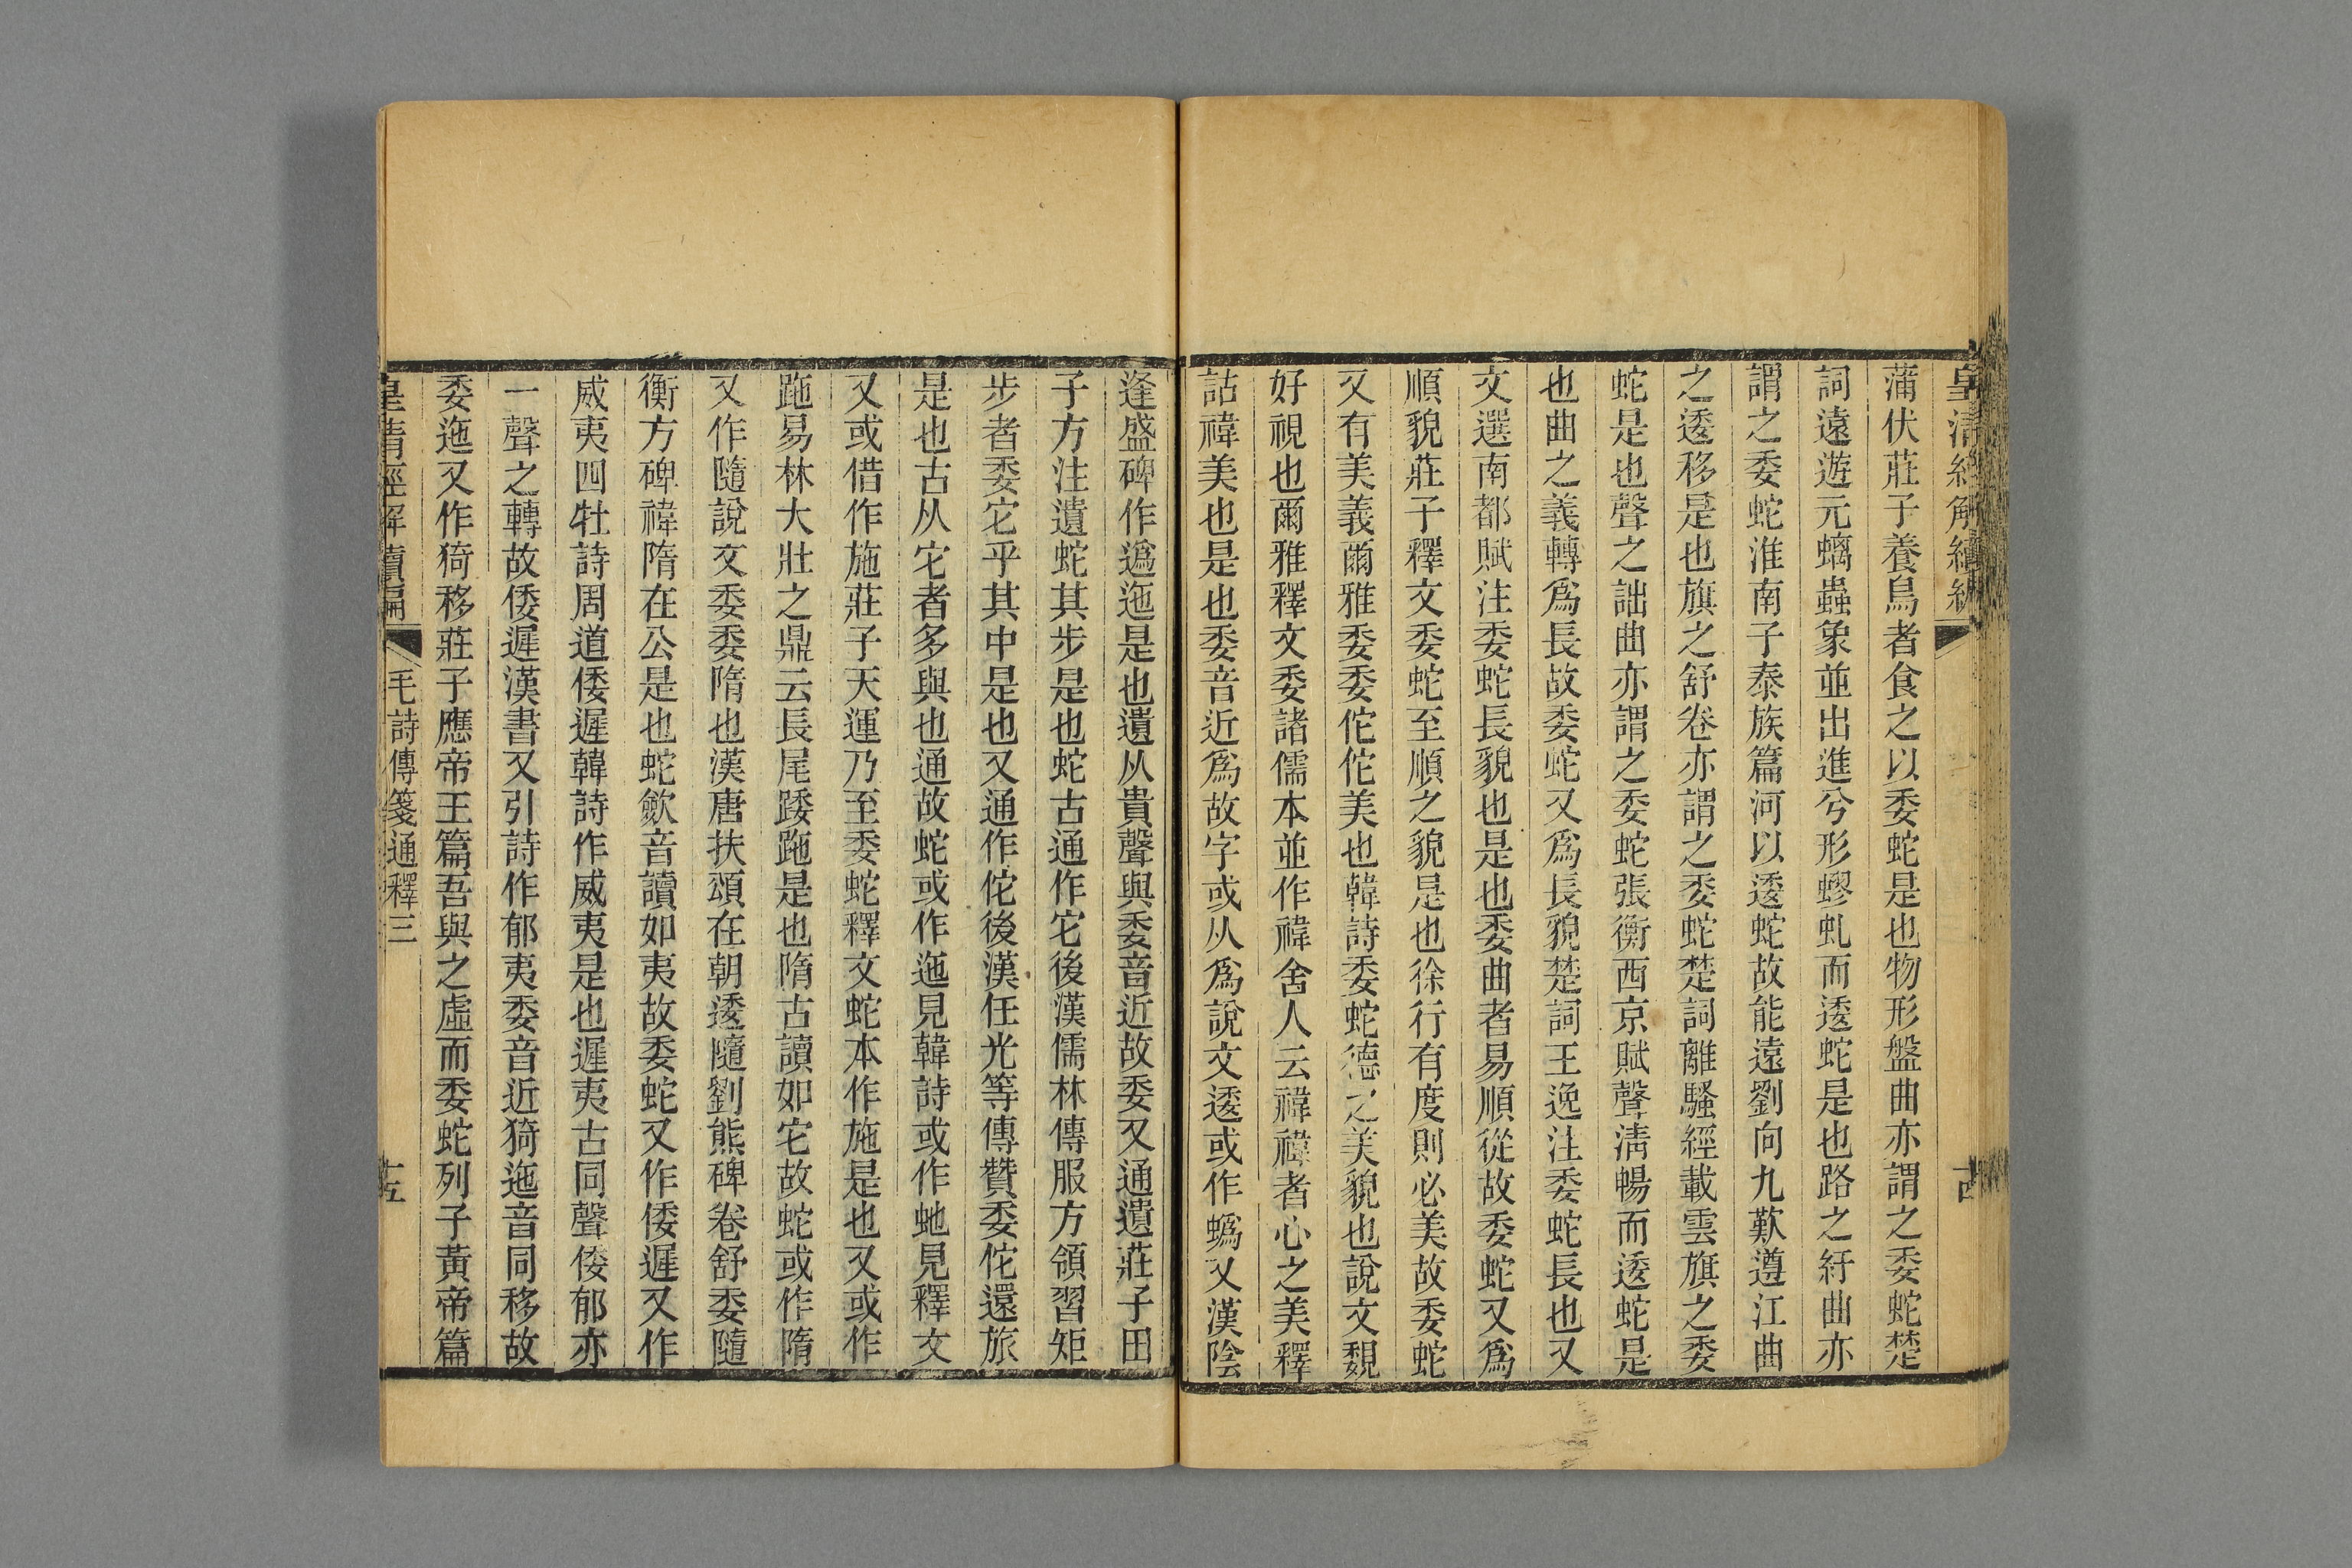 皇清經解續編
蒲伏莊子養鳥者食之以委蛇是也物形盤曲亦謂之委蛇楚
詞遠遊元螭蟲象並出進兮形蟉虬而逶蛇是也路之紆曲亦
謂之委蛇淮南子泰族篇河以逶蛇故能遠劉向九歎遵江曲
之逶移是也旗之舒卷亦謂之委蛇楚詞離騷經載雲旗之委
蛇是也聲之詘曲亦謂之委蛇張衡西京賦聲淸暢而逶蛇是
也曲之義轉爲長故委蛇又爲長貌楚詞王逸注委蛇長也又
文選南都賦注委蛇長貌也是也委曲者易順從故委蛇又爲
順貌莊子釋文委蛇至順之貌是也徐行有度則必美故委蛇
又有美義爾雅委委佗佗美也韓詩委蛇德之美貌也說文覣
好視也爾雅釋文委諸儒本並作禕舍人云禕禕者心之美釋
詁禕美也是也委音近爲故字或从爲說文逶或作蟡又漢陰
逢盛碑作逶迤是也遺从貴聲與委音近故委又通遺莊子田
子方注遺蛇其步是也蛇古通作它後漢儒林傳服方領習矩
步者委它乎其中是也又通作佗後漢任光等傳贊委佗還旅
是也古从它者多與也通故蛇或作迤見韓詩或作虵見釋文
又或借作施莊子天運乃至委蛇釋文蛇本作施是也又或作
跑易林大壯之鼎云長尾踒跑是也隋古讀如它故蛇或作隋
又作隨說文委委隋也漢唐扶頌在朝逶隨劉熊碑卷舒委隨
衡方碑禕隋在公是也蛇歛音讀如夷故委蛇又作倭遲又作
威夷四牡詩周道倭遲韓詩作威夷是也遲夷古同聲倭郁亦
一聲之轉故倭遲漢書又引詩作郁夷委音近猗迤音同移故
委迤又作猗移莊子應帝王篇吾與之虛而委蛇列子黃帝篇
皇清經解續編
毛詩傳箋通釋三
十五